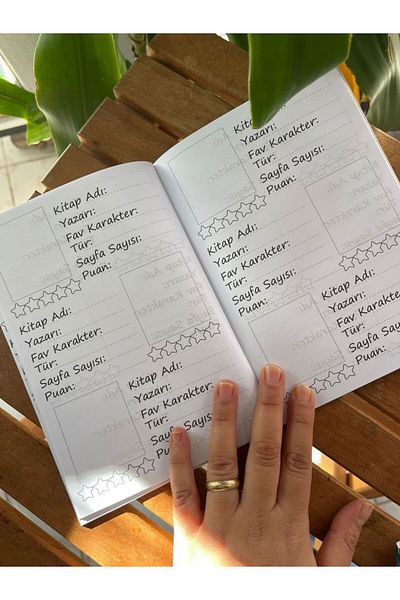 Kitap Adı:
Yazarı:
Fav Karakter:
Tür:
Sayfa Sayısı:
Puan:
Kitap Adı:
Yazarı:
Fav Karakter:
Tür:
Sayfa Sayısı:
Puan:
Kitap Adı:
Yazarı:
Fav Karakter:
Tür:
Sayfa Sayısı:
Puan:
Yazarı:
Fav Karakter:
Tür:
Sayfa Sayısı:
Puan:
Kitap Adı:
Yazarı:
Fav Karakter:
Tür:
Sayfa Sayısı:
Puan:
Kitap Adı:
Yazarı:
Fav Karakter:
Tür:
Puan: